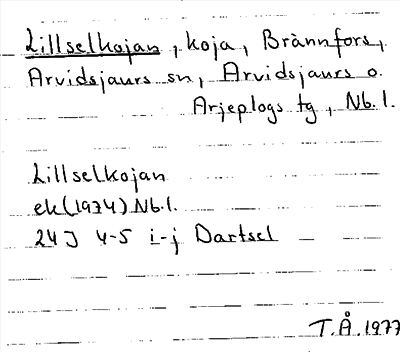 Lillselkojan, koja, Brännfors,
Arvidsjaurs sn, Arvidsjaurs o.
Arjeplogs tg, Nb.l.
Lillselkojan
ek(1974) Nb.l.
24J 4-5 i-j Dartsel —
T.Å. 1977